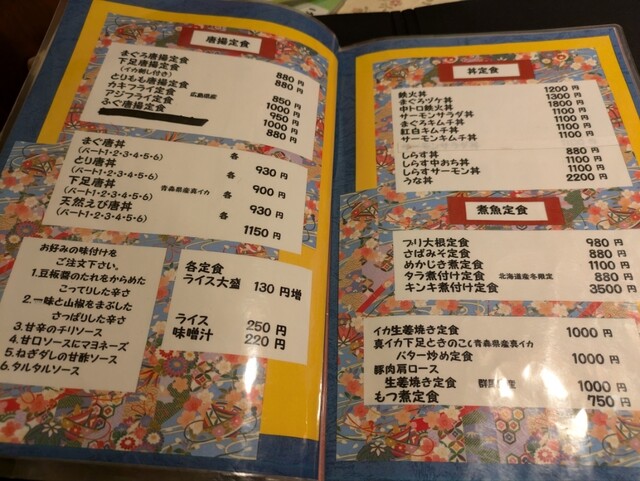 唐揚定食
まぐろ唐揚定食 880 円
下足唐揚定食 880 円
(イカ刺し付き)
とりもも唐揚定食 850 円
カキフライ定食 広島県産 1000 円
アジフライ定食 950 円
ふぐ唐揚定食 1000 円
880 円
まぐ唐丼 各 930 円
(パート1・2・3・4・5・6)
とり唐丼 各 900 円
(パート1・2・3・4・5・6)
下足唐丼 青森県産真イカ 各 930 円
(パート1・2・3・4・5・6)
天然えび唐丼 各 1150 円
(パート1・2・3・4・5・6)
お好みの味付けを
ご注文下さい。
1.豆板醤のたれをからめた
こってりした辛さ
2.一味と山椒をまぶした
さっぱりした辛さ
3.甘辛のチリソース
4.甘口ソースにマヨネーズ
5.ねぎダレの甘酢ソース
6.タルタルソース
各定食
ライス大盛 130 円増
ライス 250 円
味噌汁 220 円
丼定食
鉄火丼 1200 円
まぐろヅケ丼 1300 円
中トロ鉄火丼 1800 円
サーモンサラダ丼 1100 円
まぐろキムチ丼 1100 円
紅白キムチ丼 1100 円
サーモンキムチ丼 1100 円
しらす丼 880 円
しらす中おち丼 1100 円
しらすサーモン丼 1100 円
うな丼 2200 円
煮魚定食
ブリ大根定食 980 円
さばみそ定食 880 円
めかじき煮定食 1100 円
タラ煮付け定食 北海道産冬限定 880 円
キンキ煮付け定食 3500 円
イカ生姜焼き定食 1000 円
真イカ下足ときのこ 青森県産真イカ
バター炒め定食 1000 円
豚肉肩ロース
生姜焼き定食 1000 円
もつ煮定食 750 円